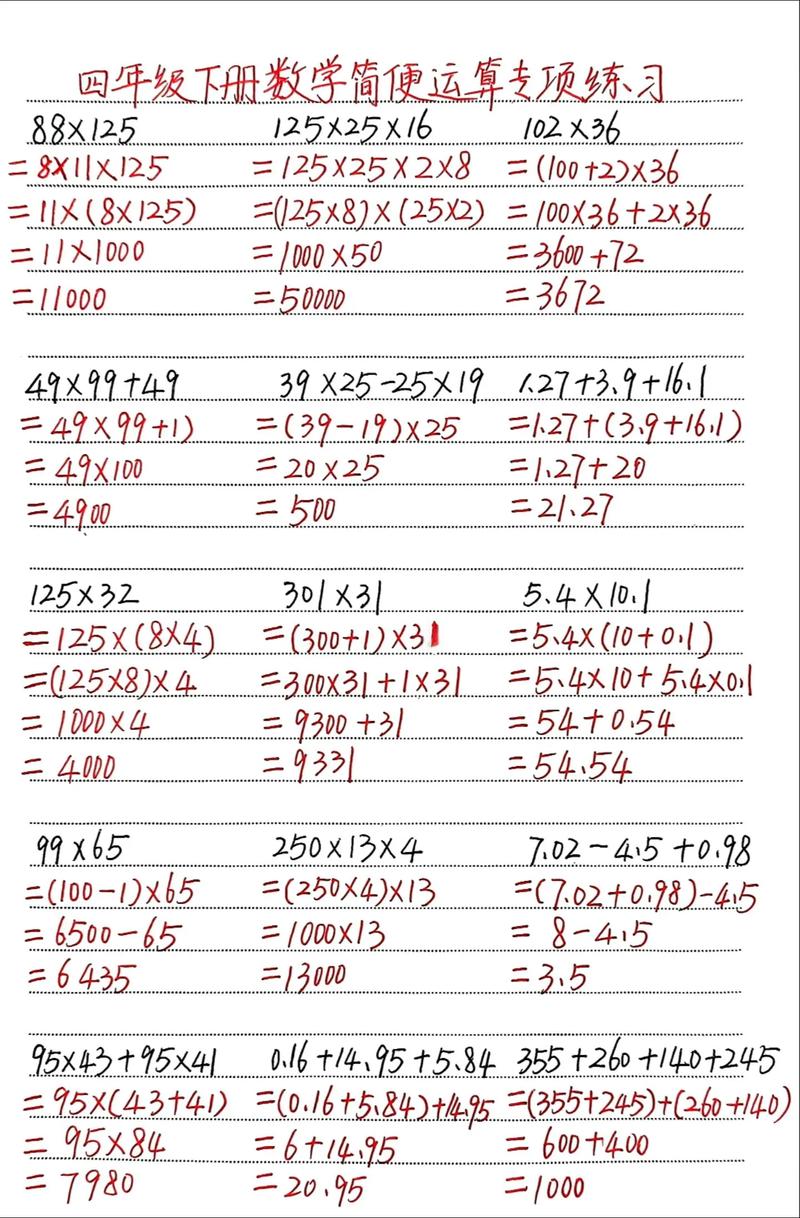 四年级下册数学简便运算专项练习
88×125
=8×11×125
=11×(8×125)
=11×1000
=11000
125×25×16
=125×25×2×8
=(125×8)×(25×2)
=1000×50
=50000
102×36
=(100+2)×36
=100×36+2×36
=3600+72
=3672
49×99+49
=49×99+1)
=49×100
=4900
39×25-25×19
=(39-19)×25
=20×25
=500
1.27+3.9+16.1
=1.27+(3.9+16.1)
=1.27+20
=21.27
125×32
=125×(8×4)
=(125×8)×4
=1000×4
=4000
301×31
=(300+1)×31
=300×31+1×31
=9300+31
=9331
5.4×10.1
=5.4×(10+0.1)
=5.4×10+5.4×0.1
=54+0.54
=54.54
99×65
=(100-1)×65
=6500-65
=6435
250×13×4
=(250×4)×13
=1000×13
=13000
7.02-4.5+0.98
=(7.02+0.98)-4.5
=8-4.5
=3.5
95×43+95×41
=95×(43+41)
=95×84
=7980
0.16+14.95+5.84
=(0.16+5.84)+14.95
=6+14.95
=20.95
355+260+140+245
=(355+245)+(260+140)
=600+400
=1000